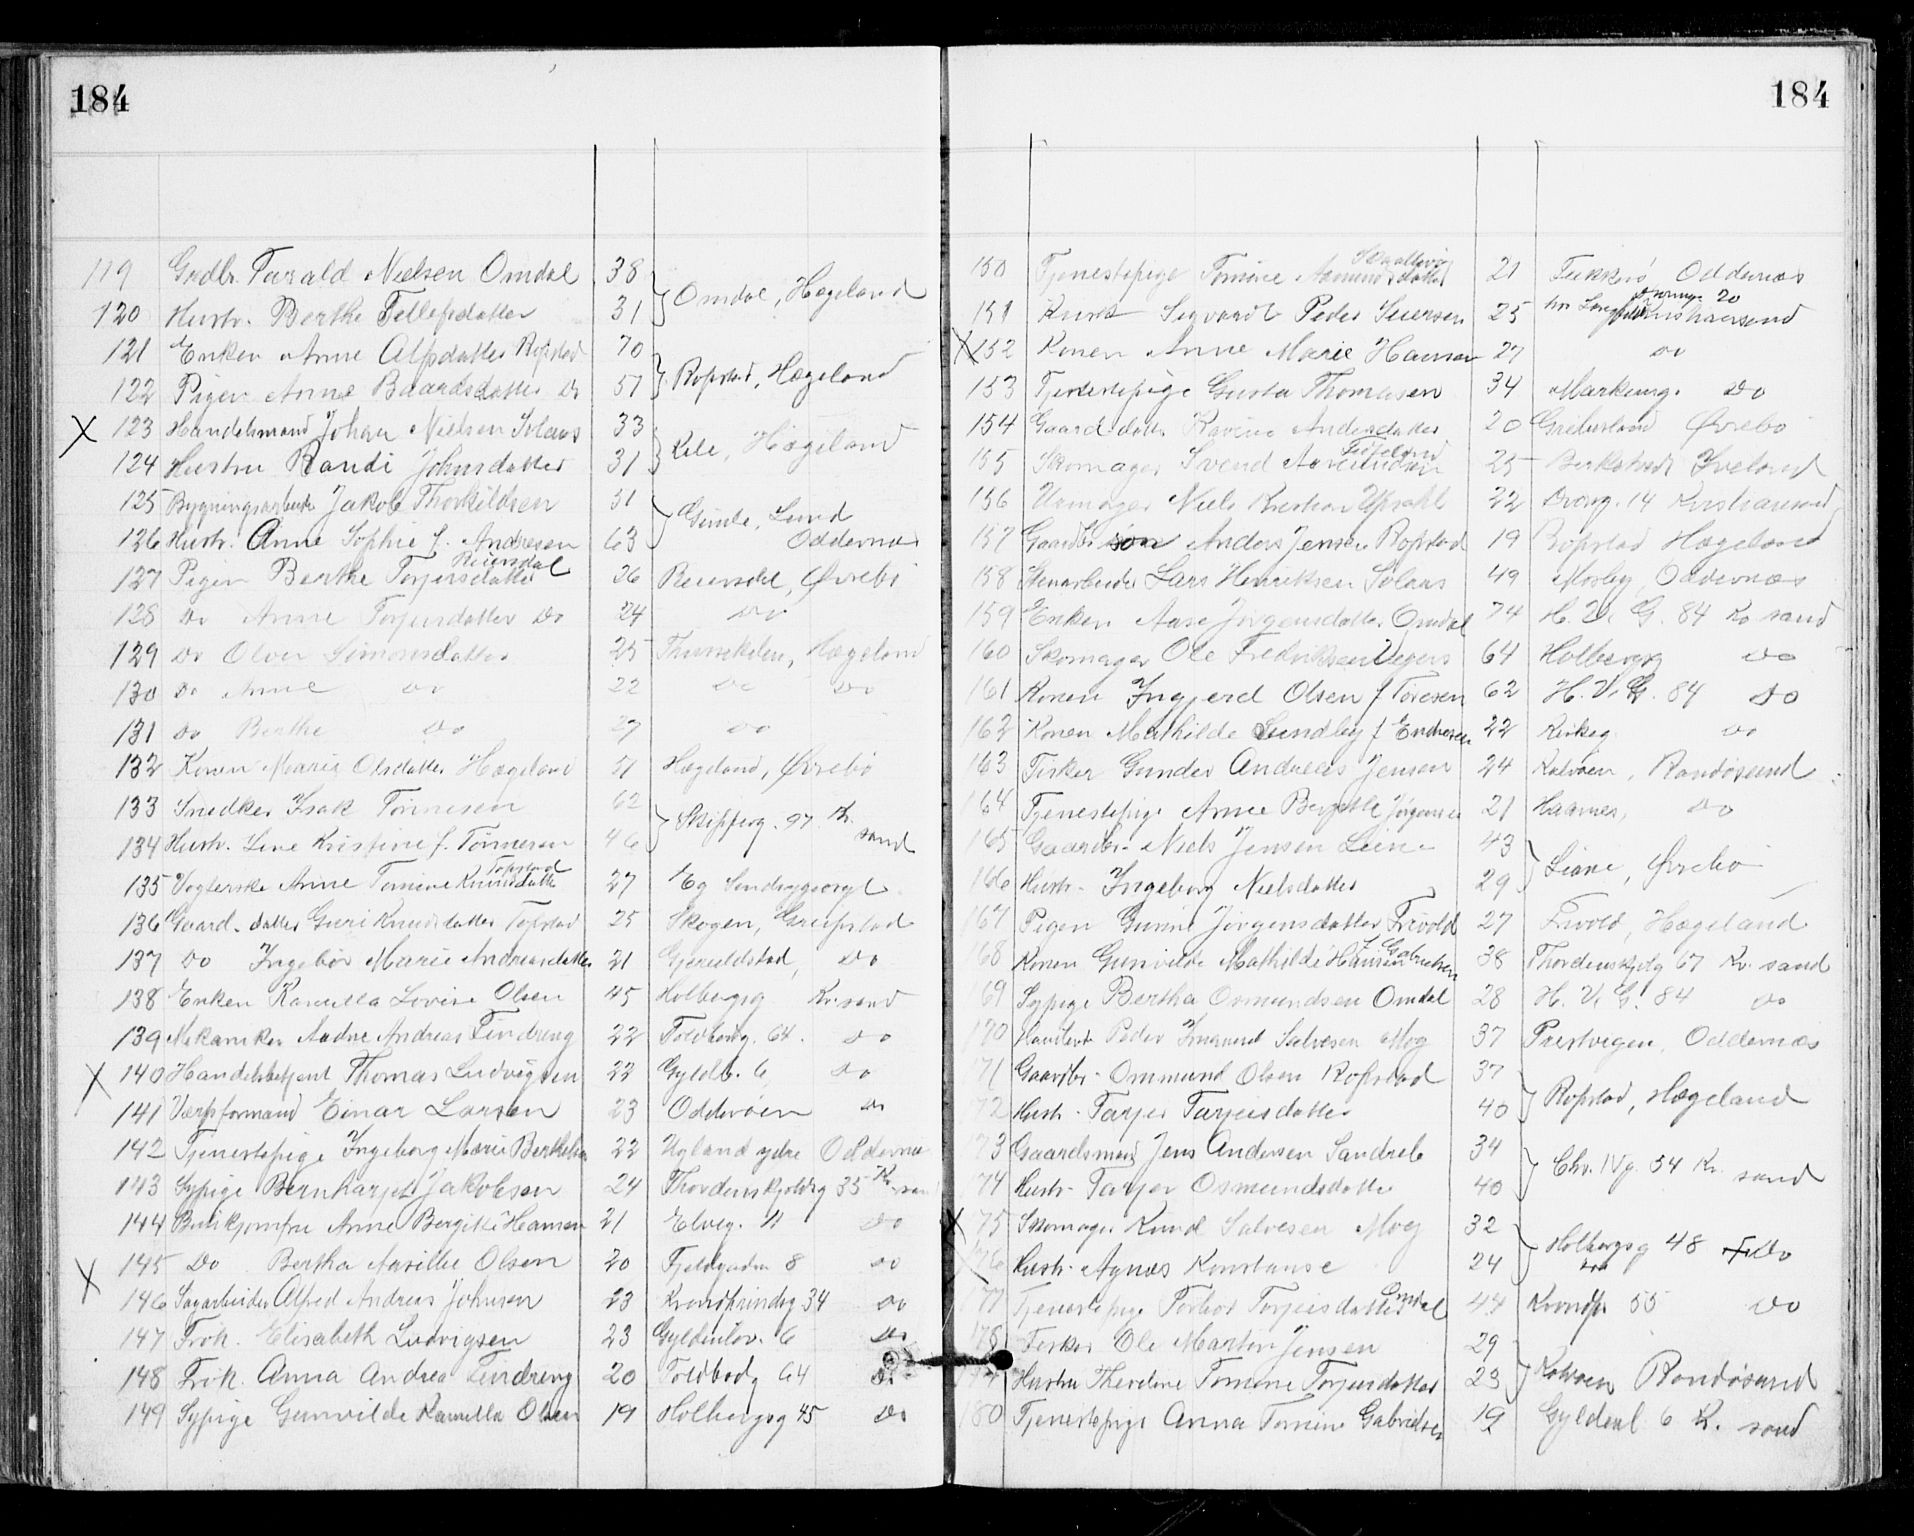 184
119 Grdbr. Tarald Nielsen Omdal 38
120 Hustr. Berthe Tellefsdatter 31 } Omdal, Hægeland
121 Enken Anne Alfsdatter Ropstad 70
122 Pigen Anne Baardsdatter Do 51 } Ropstad, Hægeland
X 123 Handelsmand Johan Nielsen Solaas 33
124 Hustru Randi Johnsdatter 31 } Kile, Hægeland
125 Bygningsarbeider Jakob Thorkildsen 51
126 Hustr. Anne Sophie f. Andresen 63 } Gimle, Lund Oddernes
127 Pigen Berthe Torjersdatter Reiersdal 26 Reiersdal, Øvrebø
128 Do Anne Torjersdatter Do 24 Do
129 Do Olver Simonsdatter 25 Hægeland
130 Do Anne Do 22 Do Do
131 Do Berthe Do 27 Do
132 Konen Marie Olsdatter Hægeland 51 Hægeland, Øvrebø
133 Snedker Isak Tønnesen 62
134 Hustr. Line Kristine f. Tønnesen 46 } Skipperg. 97 Kr. sand
135 Vogterske Anne Tomine Knudsdatter Topstad 27 Eg Sindsygeasyl
136 Gaard. datter Guri Knudsdatter Topstad 25 Skogen, Greipstad
137 Do Ingebør Marie Andreasdatter 21 Do
138 Enken Kamilla Lovise Olsen 45 Holbergsg Kr. sand
139 Mekaniker Andreas Tindreng 22 Toldbodg. 64. Do
X 140 Handelsbetjent Thomas Ludvigsen 22 Gyldl. 6 Do
141 Værpsformand Einar Larsen 23 Odderøen Do
142 Tjenestepige Ingeborg Marie Berthelsen 22 Ugland ydre Oddernes
143 Sypige Jakobsen 24 Thordenskjoldsg 35 Kr. san
144 Butikjomfru Anne Bergitte Hansen 21 Elveg. 11 Do
X 145 Do Bertha Olsen 20 Fjeldgaden 8 Do
146 Sagarbeider Alfred Andreas Johnsen 23 Kronprindsg 34 Do
147 Frøk. Elisabeth Ludvigsen 23 Gyldenløv. 6 Do
148 Frøk. Anna Andrea Tindreng 20 Toldbodg 64 Do
149 Sypige Gunvilde Kamilla Olsen 19 Holbergsg 45 Do
184
150 Tjenestepige Tomine Aamundsdatter 21 Oddernes
151 Kusk Sigvardt Peder Siversen 25 Dronnge 20 Kristiansand
X 152 Konen Anne Marie Hansen 27 Do
153 Tjenestepige Gusta Thomasen 34 Markensg. Do
154 Gaard datter Andersdatter 20 Øvrebø
155 Skomager Svend 25 Iveland
156 Urmager Niels Kristian Opsahl 22 Dronng. 14 Kristiansand
157 Gaardbr søn Anders Jensen Ropstad 19 Ropstad Hægeland
158 Stenarbeider Lars Henriksen Solaas 49 Mosby, Oddernes
159 Enken Aase Jørgensdatter Omdal 74 H. V. G. 84 Kr. sand
160 Skomager Ole Fredriksen 64 Holbergsg Do
161 Konen Ingjerd Olsen f Toresen 62 H. V. G. 84 Do
162 Konen Mathilde Sundby f Endresen 22 Kirkeg Do
163 Fisker Gunder Andreas Jensen 24 Kalvøen, Randøsund
164 Tjenestepige Anne Bergitte Jørgensen 21 Do
165 Gaardbr. Niels Jensen Leine 43
166 Hustr. Ingeborg Nielsdatter 29 } Leine, Øvrebø
167 Pigen Gunne Jørgensdatter Frivold 27 Frivold, Hægeland
68 Konen Gunvilde Mathilde Hansen f. Gabrielsen 38 Thordenskjolg 67 Kr. sand
69 Sypige Bertha Osmundsen Omdal 28 H. V. G. 84 Do
170 Handlende Peder Salvesen Moy 37 Prestvigen, Oddernes
71 Gaardbr. Ommund Olsen Ropstad 37
72 Hustr. Tarjer Tarjeisdatter 40 } Ropstad, Hægeland
73 Gaardsmand Jens Andersen Sandreb 34
74 Hustr. Tarjer Osmundsdatter 40 } Chr. IVg. 54 Kr. sand
X 75 Skomager Knud Salvesen Moy 32
76 Hustr. Agnæs Konstanse 24 } Holbergsg 48 Do
177 Tjenestepige Torbor Torjersdatter Omdal 44 Kronpr 55 Do
178 Fisker Ole Martin Jensen 29
Hustru Theodine Tomine Torjersdatter 23 } Kalvøen Randøsund
180 Tjenestepige Anna Tomine Gabrielsen 19 Gyldenl 6 Kr. sand